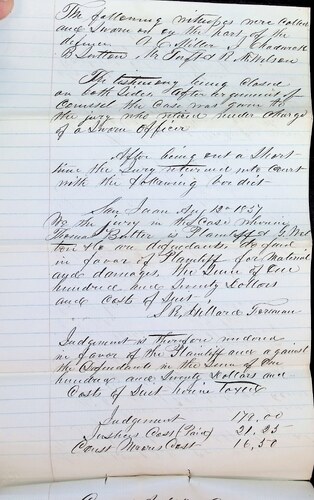 The following witnesses were called
and Sworn on by the part of the
A. C. Miller J. Chadwick
B Sutton M Tufts R. Nelson
The testimony being closed
on both Sides after argument of
Counsel the Case was gave to
the jury who retired under Charge
of a Sworn Officer
After being out a Short
time the Jury returned into Court
with the following verdict
San Juan 1857
We the jury in the Case wherein
Thomas Butler is Plaintiff &
& Co are defendants do find
in favor of Plaintiff for Material
and damages. The Sum of One
hundred and Seventy Dollars
and Costs of Suit
Hillard Foreman
Judgement is therefore rendered
in favor of the Plaintiff and against
the Defendants in the Sum of One
hundred and Seventy Dollars and
Costs of Suit herein Taxed
Judgement
Justices Cost (Paid)
Const Moores Cost 16,50